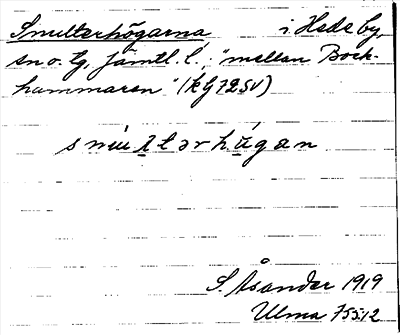 Smulterhögarna i Hede by,
sn o. tg, Jämtl. l.; "mellan Bock-
hammaren" (kg 72 SV)
smultərhúgan
S. Åsander 1919
Ulma 755:12